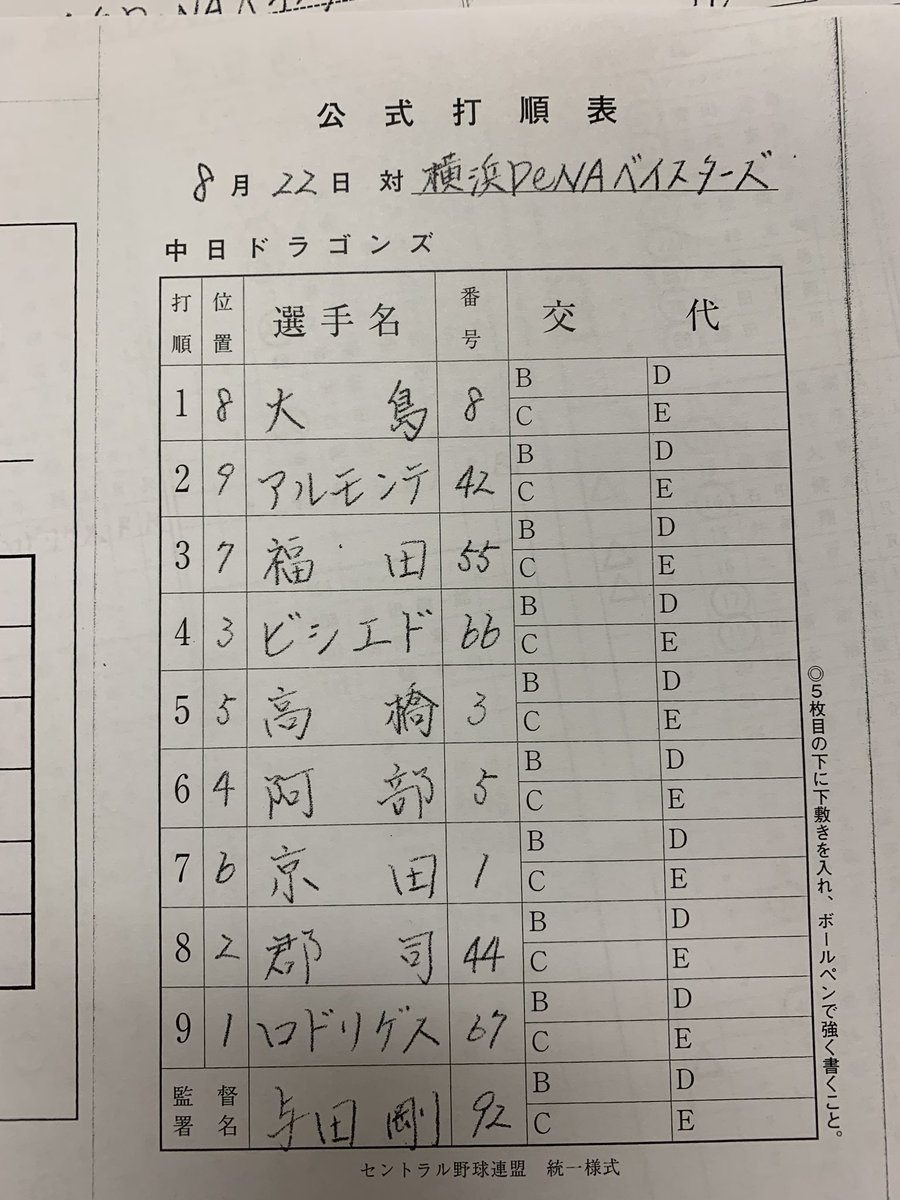 公式打順表
8月22日 対 横浜DeNAベイスターズ
中日ドラゴンズ
打順 位置 選手名 番号 交代
1 8 大島 8 B D
C E
2 9 アルモンテ 42 B D
C E
3 7 福田 55 B D
C E
4 3 ビシエド 66 B D
C E
5 5 高橋 3 B D
C E
6 4 阿部 5 B D
C E
7 6 京田 1 B D
C E
8 2 郡司 44 B D
C E
9 1 ロドリゲス 67 B D
C E
監督署名 与田剛 92 B D
C E
◎5枚目の下に下敷きを入れ、ボールペンで強く書くこと。
セントラル野球連盟 統一様式